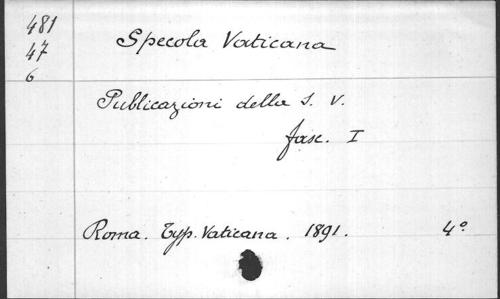 481
47
6
Specola Vaticana
Publicazioni della S. V.
fasc. I
Roma. Typ. Vaticana. 1891. 4°